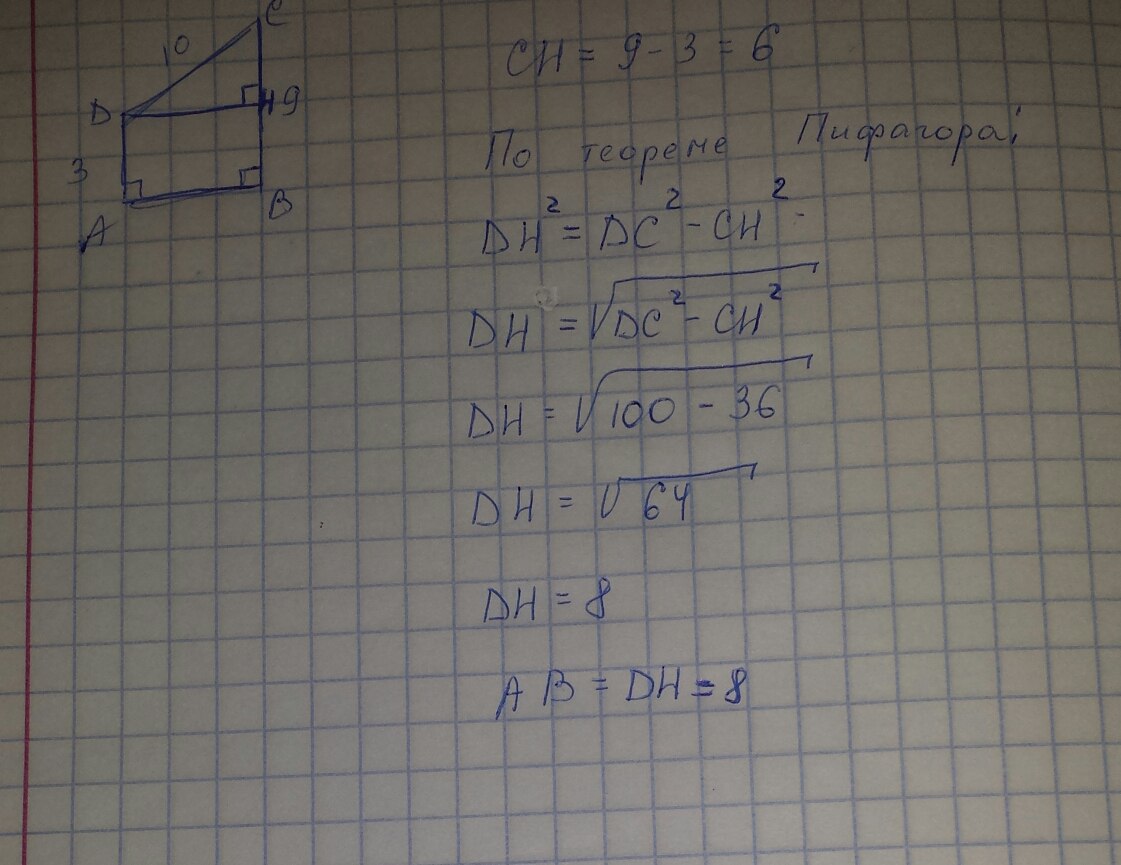 C
10
D
H 9
3
B
A
CH = 9 - 3 = 6
По теореме Пифагора;
DH² = DC² - CH²
DH = √DC² - CH²
DH = √100 - 36
DH = √64
DH = 8
AB = DH = 8